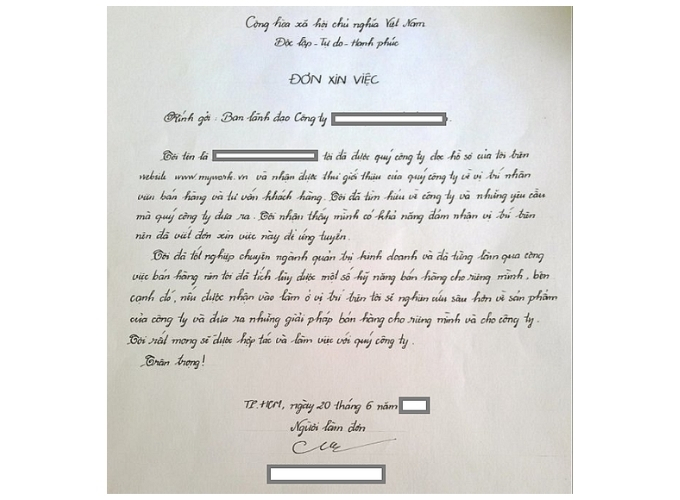 Cộng hòa xã hội chủ nghĩa Việt Nam
Độc lập - Tự do - Hạnh phúc
ĐƠN XIN VIỆC
Kính gởi : Ban lãnh đạo Công ty .
Tôi tên là tôi đã được quý công ty đọc hồ sơ của tôi trên
website www.mywork.vn và nhận được thư giới thiệu của quý công ty về vị trí nhân
viên bán hàng và tư vấn khách hàng. Tôi đã tìm hiểu về công ty và những yêu cầu
mà quý công ty đưa ra. Tôi nhận thấy mình có khả năng đảm nhận vị trí trên
nên đã viết đơn xin việc này để ứng tuyển.
Tôi đã tốt nghiệp chuyên ngành quản trị kinh doanh và đã từng làm qua công
việc bán hàng nên tôi đã tích lũy được một số kỹ năng bán hàng cho riêng mình, bên
cạnh đó, nếu được nhận vào làm ở vị trí trên tôi sẽ nghiên cứu sâu hơn về sản phẩm
của công ty và đưa ra những giải pháp bán hàng cho riêng mình và cho công ty.
Tôi rất mong sẽ được hợp tác và làm việc với quý công ty.
Trân trọng!
TP.HCM, ngày 20 tháng 6 năm
Người làm đơn